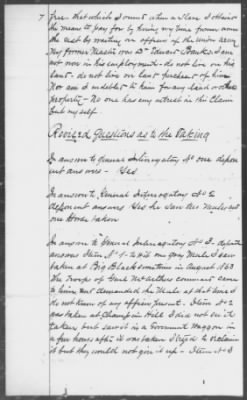 7 free - that which I owned when a Slave I obtained
the means to pay for by hiring my time from some
the rest by waiting on officers of the Union army
My former Master was Dr Edward Banks. I am
not now in his employment - do not live on his
land - do not live on land purchased of him
Nor am I indebted to him for any land or other
property - No one has any interest in this Claim
but myself
Revised Questions as to the Taking
In answer to general Interrogatory No one depon
ent answers - Yes
In answer to General Interrogatory No 2
deponent answers Yes he saw the Mule and
one Horse taken
In answer to General Interrogatory No 3. deponent
answers Item No 1 - to wit one gray Mule I saw
taken at Big Black sometime in August 1863
The troops of Genl McArthur's command came
to him and demanded the Mule at that time I
do not know of any officer present. Item No 2
was taken at Champion Hill I did not see it
taken but saw it in a Government Waggon in
a few hours after it was taken I tried to reclaim
it but they would not give it up - Item No 3